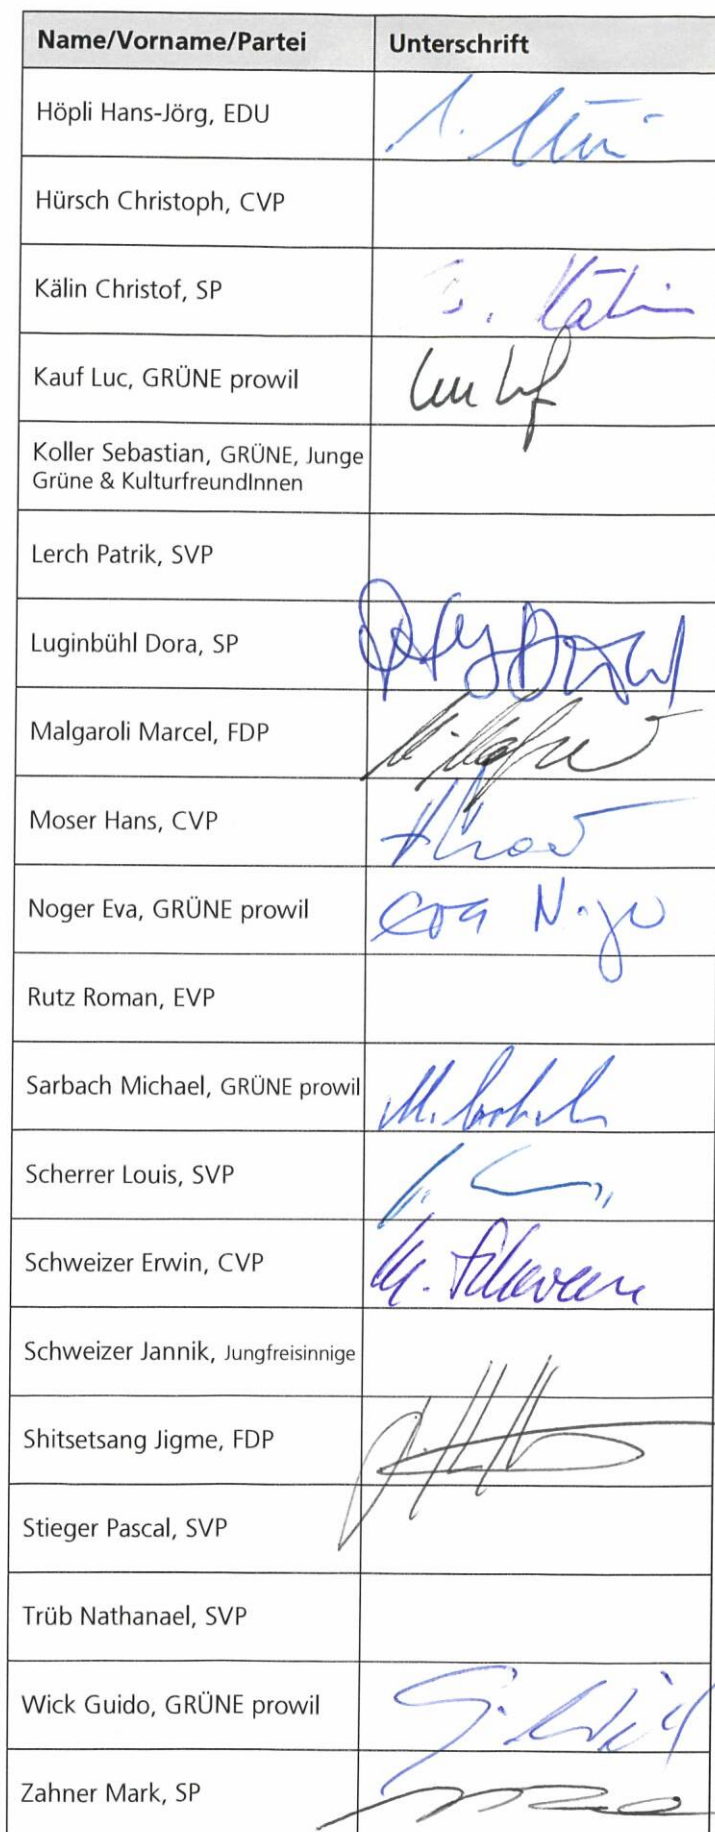 Name/Vorname/Partei Unterschrift
Höpli Hans-Jörg, EDU
Hürsch Christoph, CVP
Kälin Christof, SP Kälin
Kauf Luc, GRÜNE prowil
Koller Sebastian, GRÜNE, Junge
Grüne & KulturfreundInnen
Lerch Patrik, SVP
Luginbühl Dora, SP
Malgaroli Marcel, FDP
Moser Hans, CVP
Noger Eva, GRÜNE prowil Eva
Rutz Roman, EVP
Sarbach Michael, GRÜNE prowil
Scherrer Louis, SVP
Schweizer Erwin, CVP
Schweizer Jannik, Jungfreisinnige
Shitsetsang Jigme, FDP
Stieger Pascal, SVP
Trüb Nathanael, SVP
Wick Guido, GRÜNE prowil G. Wick
Zahner Mark, SP